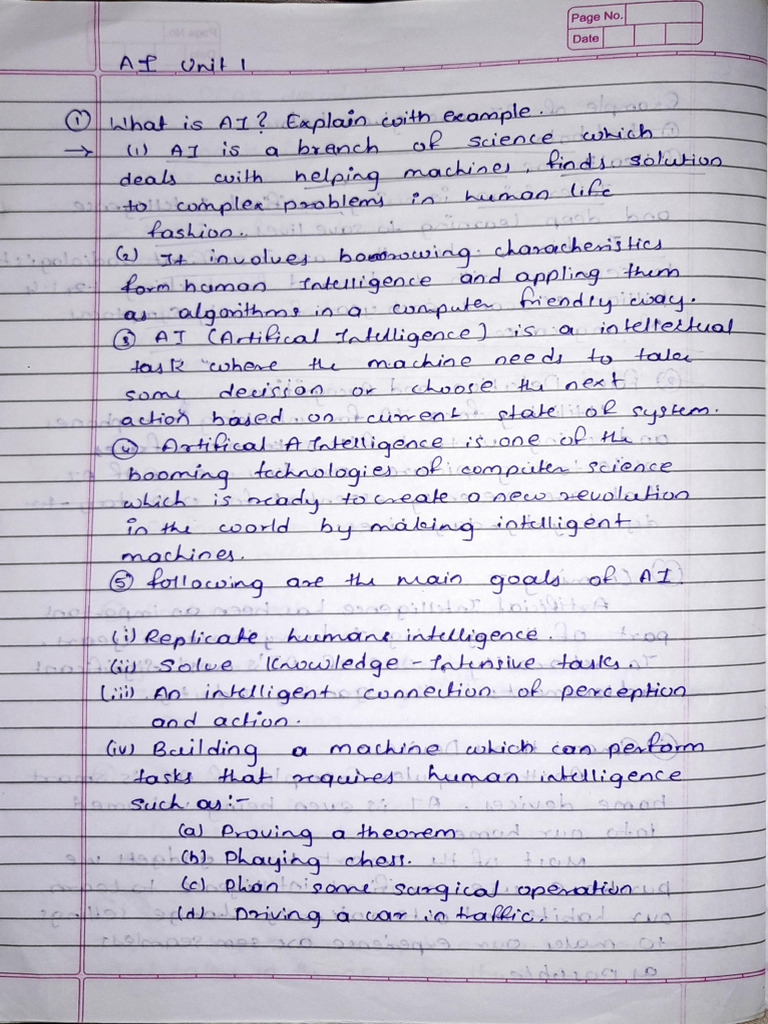 Page No.
Date
AI Unit 1
① What is AI? Explain with example.
→ (1) AI is a branch of science which
deals with helping machines, finds solution
to complex problems in human life
fashion.
(2) It involves borrowing characheristics
form human Intelligence and appling them
as algorithms in a computer friendly way.
③ AI (Artifical Intelligence) is a intellectual
task where the machine needs to take
some decision or choose the next
action based on current state of system.
④ Artifical A Intelligence is one of the
booming technologies of computer science
which is ready to create a new revolution
in the world by making intelligent
machines.
⑤ following are the main goals of AI
(i) Replicate humans intelligence.
(ii) Solve Knowledge - Intensive tasks.
(iii) An intelligent connection of perception
and action.
(iv) Building a machine which can perform
tasks that requires human intelligence
such as:-
(a) Proving a theorem
(b) Phaying chess.
(c) Plan some surgical operation
(d) Driving a car in traffic.